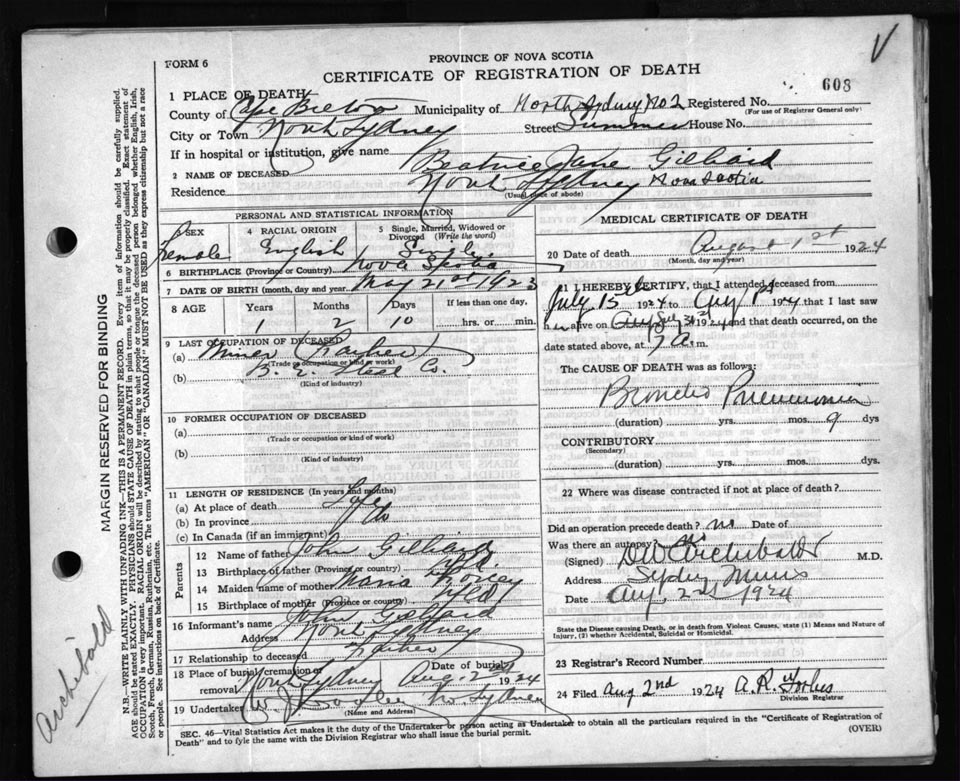 FORM 6
PROVINCE OF NOVA SCOTIA
CERTIFICATE OF REGISTRATION OF DEATH
608
1 PLACE OF DEATH
County of Cape Breton Municipality of North Sydney No 2 Registered No.
(For use of Registrar General only)
City or Town North Sydney Street Summer House No.
If in hospital or institution, give name
2 NAME OF DECEASED Beatrice Jane Gilliard
Residence North Sydney Nova Scotia
(Usual place of abode)
PERSONAL AND STATISTICAL INFORMATION
3 SEX Female
4 RACIAL ORIGIN English
5 Single, Married, Widowed or Divorced (Write the word) Single
6 BIRTHPLACE (Province or Country) Nova Scotia
7 DATE OF BIRTH (month, day and year) May 21st 1923
8 AGE Years Months Days If less than one day.
1 2 10 hrs. or min.
9 LAST OCCUPATION OF DECEASED
(a) Miner (Father)
(Trade or occupation or kind of work)
(b) B. E. Steel Co.
(Kind of industry)
10 FORMER OCCUPATION OF DECEASED
(a)
(Trade or occupation or kind of work)
(b)
(Kind of industry)
11 LENGTH OF RESIDENCE (In years and months)
(a) At place of death Life
(b) In province do
(c) In Canada (if an immigrant)
Parents
12 Name of father John Gilliard
13 Birthplace of father (Province or country)
14 Maiden name of mother Maria
15 Birthplace of mother (Province or country) Nfld
16 Informant's name John Gilliard
Address North Sydney
17 Relationship to deceased Father
18 Place of burial, cremation or removal North Sydney Date of burial Aug 2 1924
19 Undertaker No. Sydney
(Name and Address)
MEDICAL CERTIFICATE OF DEATH
20 Date of death August 1st 1924
(Month, day and year)
21 I HEREBY CERTIFY, that I attended deceased from
July 15th 1924 to Aug 1st 1924 that I last saw
her alive on July 31st 1924 and that death occurred, on the
date stated above, at 7 a.m.
The CAUSE OF DEATH was as follows:
Broncho Pneumonia
(duration) yrs. mos. 9 dys
CONTRIBUTORY
(Secondary)
(duration) yrs. mos. dys.
22 Where was disease contracted if not at place of death?
Did an operation precede death? no Date of
Was there an autopsy? no
(Signed) Archibald M.D.
Address Sydney Mines
Date Aug. 2nd 1924
State the Disease causing Death, or in death from Violent Causes, state (1) Means and Nature of Injury, (2) whether Accidental, Suicidal or Homicidal.
23 Registrar's Record Number
24 Filed Aug 2nd 1924 A.R. Forbes
Division Registrar
SEC. 46—Vital Statistics Act makes it the duty of the Undertaker or person acting as Undertaker to obtain all the particulars required in the "Certificate of Registration of
Death" and to fyle the same with the Division Registrar who shall issue the burial permit.
(OVER)
MARGIN RESERVED FOR BINDING
N.B.—WRITE PLAINLY WITH UNFADING INK—THIS IS A PERMANENT RECORD. Every item of information should be carefully supplied.
AGE should be stated EXACTLY. PHYSICIANS should STATE CAUSE OF DEATH in plain terms, so that it may be properly classified. Exact statement of
OCCUPATION is very important. RACIAL ORIGIN will be described by stating to what people or tongue the deceased person belonged whether English, Irish,
Scotch, French, German, Russian, Ruthenian, etc. The terms "AMERICAN" OR "CANADIAN" MUST NOT BE USED as they express citizenship but not a race
or people. See instructions on back of Certificate.
Archibald